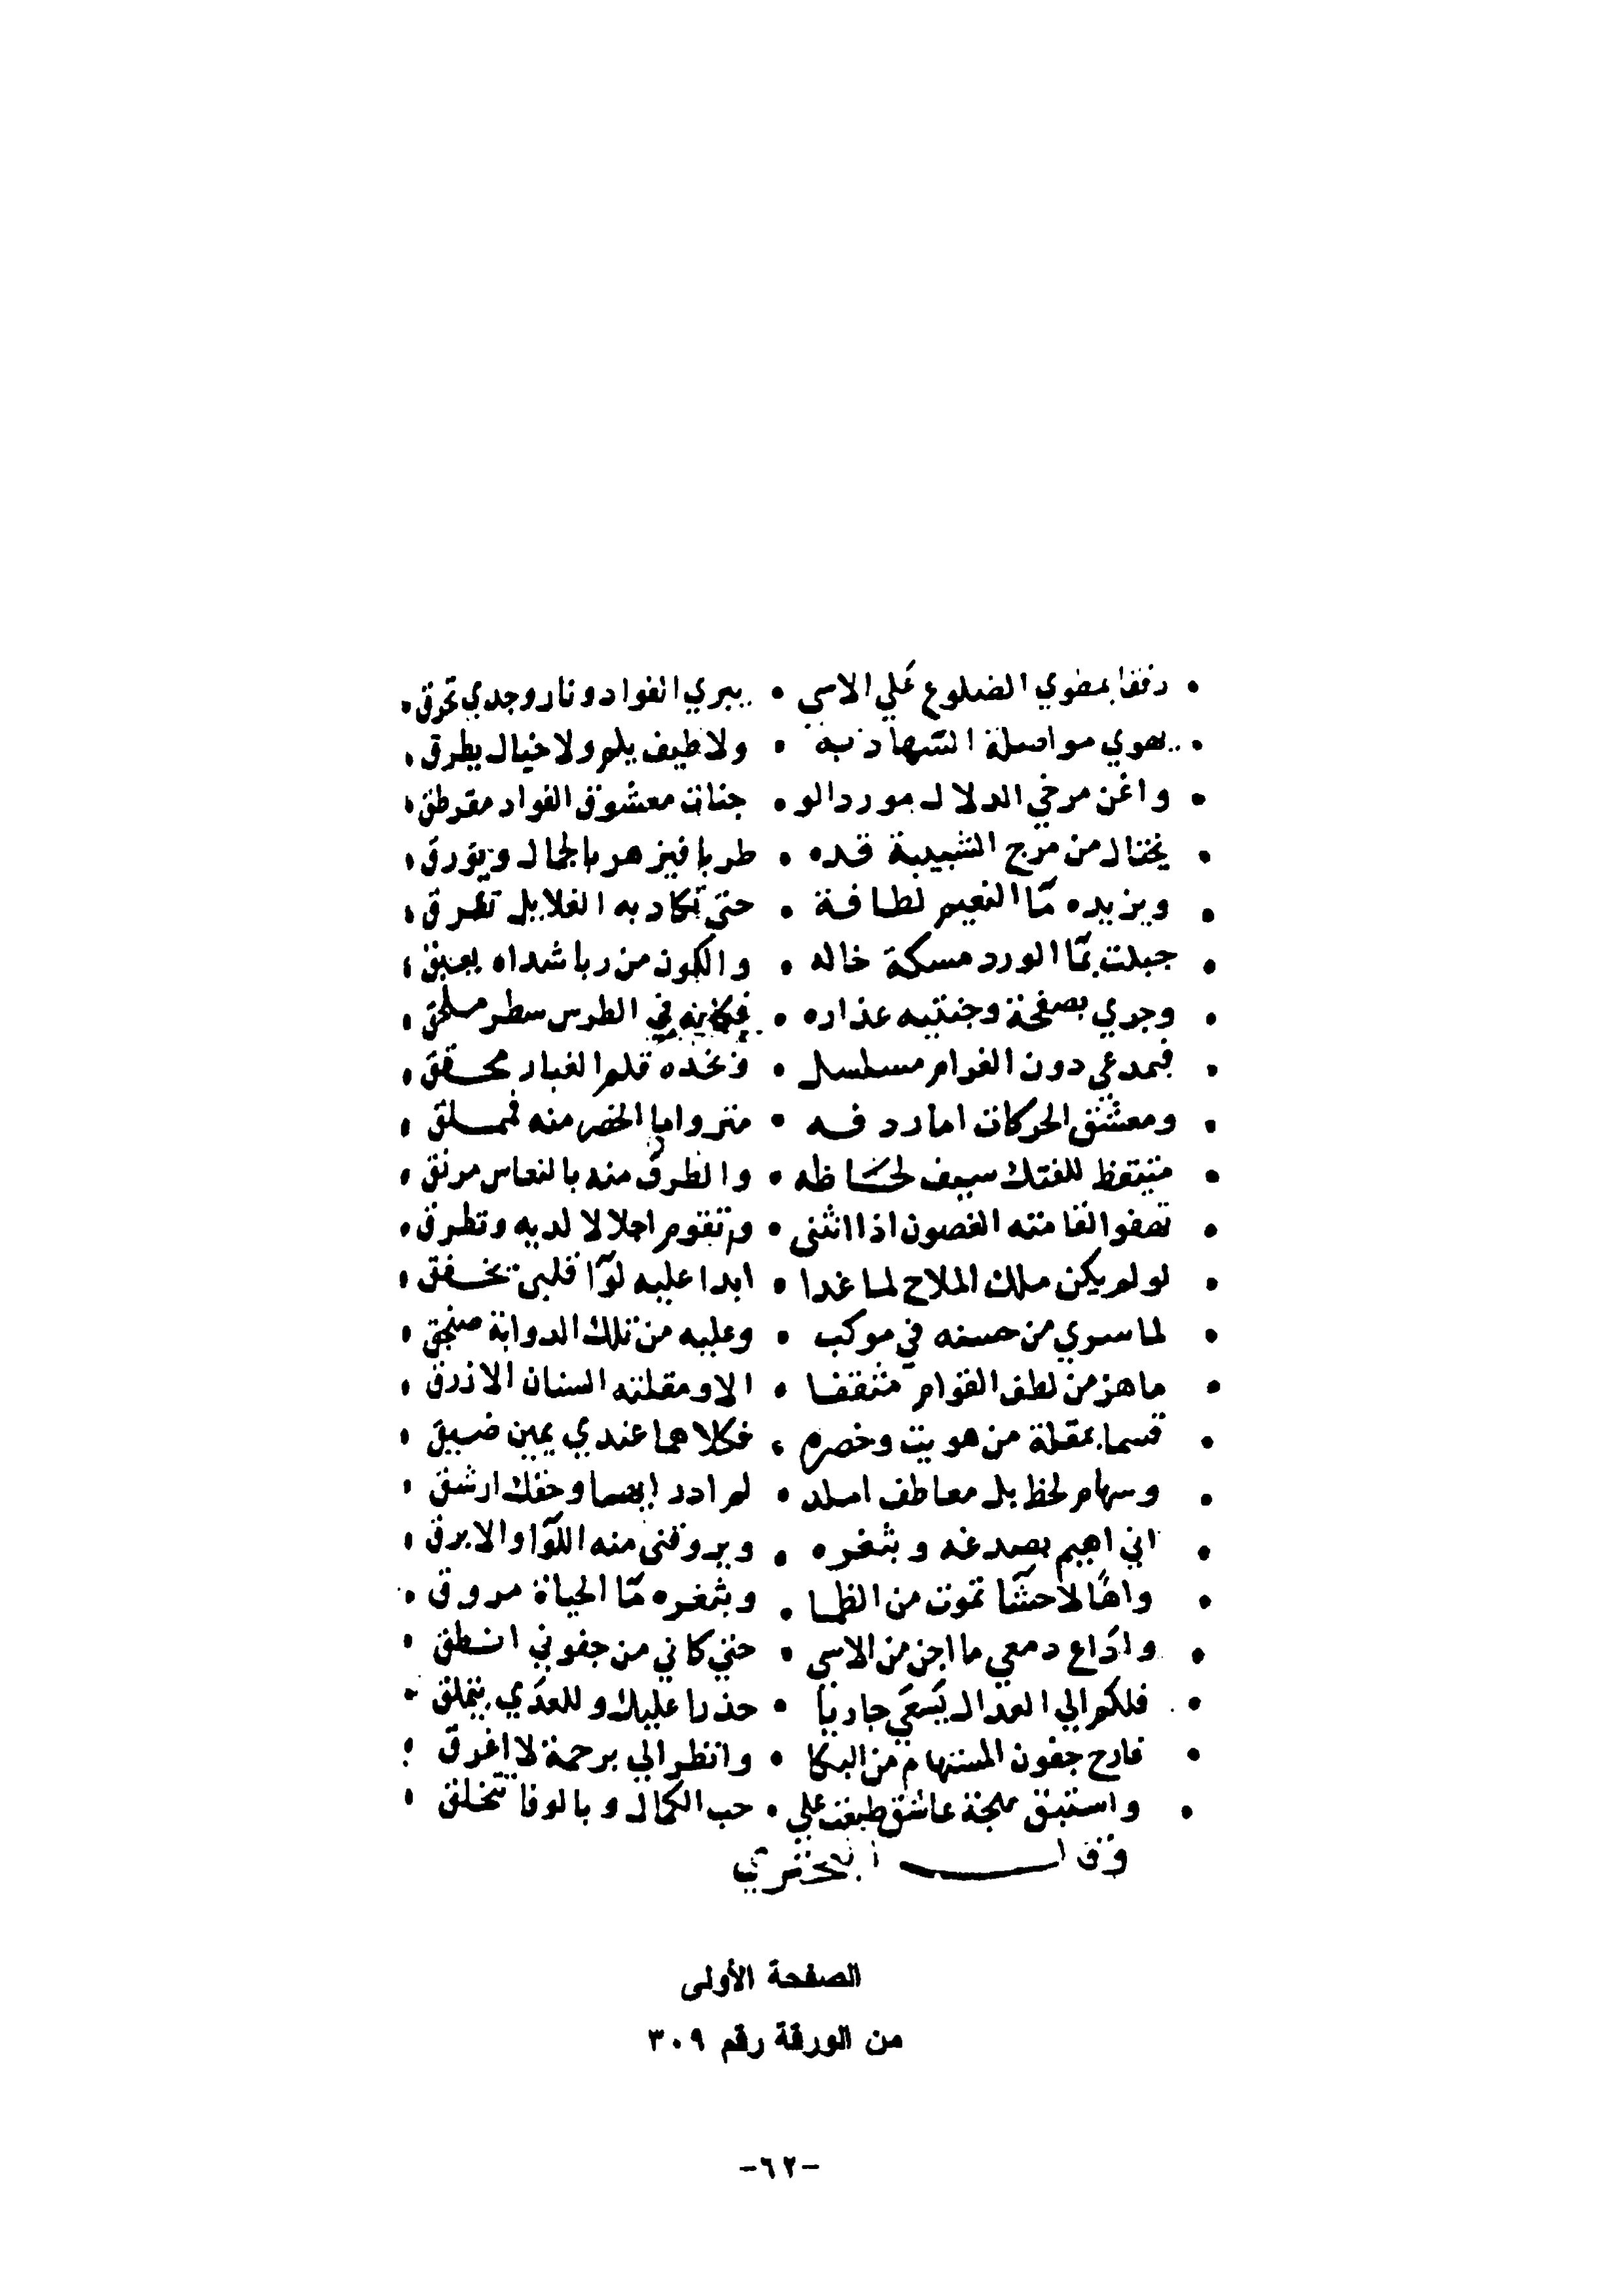 • رفقا بمطوي الضلوع علي الاسي • يبري الفواد ونار وجدي تحرق •
• يهوي مواصلة السهاد به • ولا طيف يلم ولا خيال يطرق •
• واغن مرخي الدلال مورد الو • جنات معشوق الفواد مقرطق •
• يختال من مرح الشبيبة قده • طربا فيزهر بالجمال ويورق •
• ويزيده مآ النعيم لطافة • حتي تكاد به الغلايل تغرق •
• جبلت بمآ الورد مسكة خاله • والكون من ريا شداه يعبق •
• وجدي بصفحة وجنتيه عذاره • فكانه في الطرس سطر ملحق •
• فبمدمعي دون الغرام مسلسل • وبخده قلم الغبار محقق •
• ومعشق الحركات اما ردفه • منه فمملق •
• متيقظ للفتك سيف لحاظه • والطرف منه بالنعاس مرنق •
• تصفوا لقامته الغصون اذا انثني • وتقوم اجلالا لديه وتطرق •
• لو لم يكن ملك الملاح لما غدا • ابدا عليه لوآ قلبي يخفق •
• لما سري من حسنه في موكب • وعليه من تلك الدوابة صنجق •
• ما هز من لطف القوام مثقفا • الا ومقلته السنان الازرق •
• قسما بمقلة من هويت وخصره • فكلاهما عندي يمين ضيق •
• وسهام لحظ بل معاطف املد • لم ادر ايهما وحقك ارشق •
• اني اهيم بصدغه وبثغره • ويروقني منه اللوآ والابرق •
• واها لاحشآ تموت من الظما • وبثغره مآ الحياة مروق •
• واذاع دمعي ما اجن من الاسي • حتي كاني من جفوني انطق •
• فلكم الي العدال يسعي جاريا • حذرا عليك وللعدي يتملق •
• فارح جفون المستهام من البكا • وانظر الي برحمة لا اغرق •
• واستبق مهجة عاشق طبعت علي • حب الكمال وبالوفا تتخلق •
وقال البحتري
الصفحة الأولى
من الورقة رقم ٣٠٩
-٦٢-